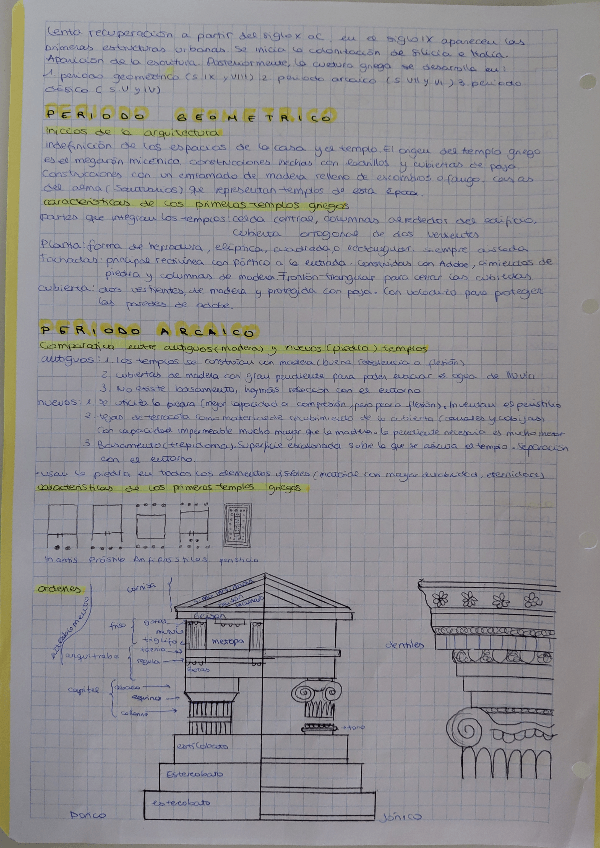 Lenta recuperación a partir del siglo X aC, en el siglo IX aparecen las
primeras estructuras urbanas. Se inicia la colonización de Sicilia e Italia.
Aparición de la escritura. Posteriormente, la cultura griega se desarrolla en:
1. período geométrico (S. IX y VIII) 2. período arcaico (S. VII y VI) 3. período
clásico (S. V y IV)
PERIODO GEOMETRICO
Inicios de la arquitectura
Indefinición de los espacios de la casa y el templo. El origen del templo griego
es el megarón micénico. construcciones hechas con ladrillos y cubiertas de paja.
Construcciones con un entramado de madera relleno de escombros o fango. casas
del alma (Santuarios) que representan templos de esta época.
características de los primeros templos griegos
partes que integran los templos: celda central, columnas alrededor del edificio,
cubierta ortogonal de dos vertientes
Planta: forma de herradura, elíptica, cuadrada o rectangular. siempre aislada
fachadas: principal rectilínea con pórtico a la entrada. construidas con Adobe, cimientos de
piedra y columnas de madera. Frontón triangular para cerrar las cubiertas
cubierta: dos vertientes de madera y protegida con paja. Con voladizo para proteger
las paredes de adobe.
PERIODO ARCAICO
Comparativa entre antiguos (madera) y nuevos (piedra) templos
antiguos: 1. los templos se construían en madera (buena resistencia a flexión)
2. cubiertas de madera con gran pendiente para poder evacuar el agua de lluvia
3. No existe basamento, hay más relación con el entorno
nuevos: 1. Se utiliza la piedra (mejor capacidad a compresión, pero peor a flexión).
2. tejas de terracota como material de recubrimiento de la cubierta (canales y cobijas)
con capacidad impermeable mucho mayor que la madera. la pendiente necesaria es mucho menor
3. Basamento (crepidoma). Superficie escalonada sobre la que se apoya el templo. Separación
con el entorno.
usan la piedra en todos los elementos (material con mayor, eternidad)
características de los primeros templos griegos
In antis Próstilo Anfipróstilos períptero
Ordenes
entablamento
cornisa
friso
gotas
mútulo
triglifo
arquitrabe
tenia
régula
capitel
ábaco
equino
collarino
geison
metopa
gotas
estilobato
Estereobato
estereobato
toro
dentiles
Dórico
Jónico